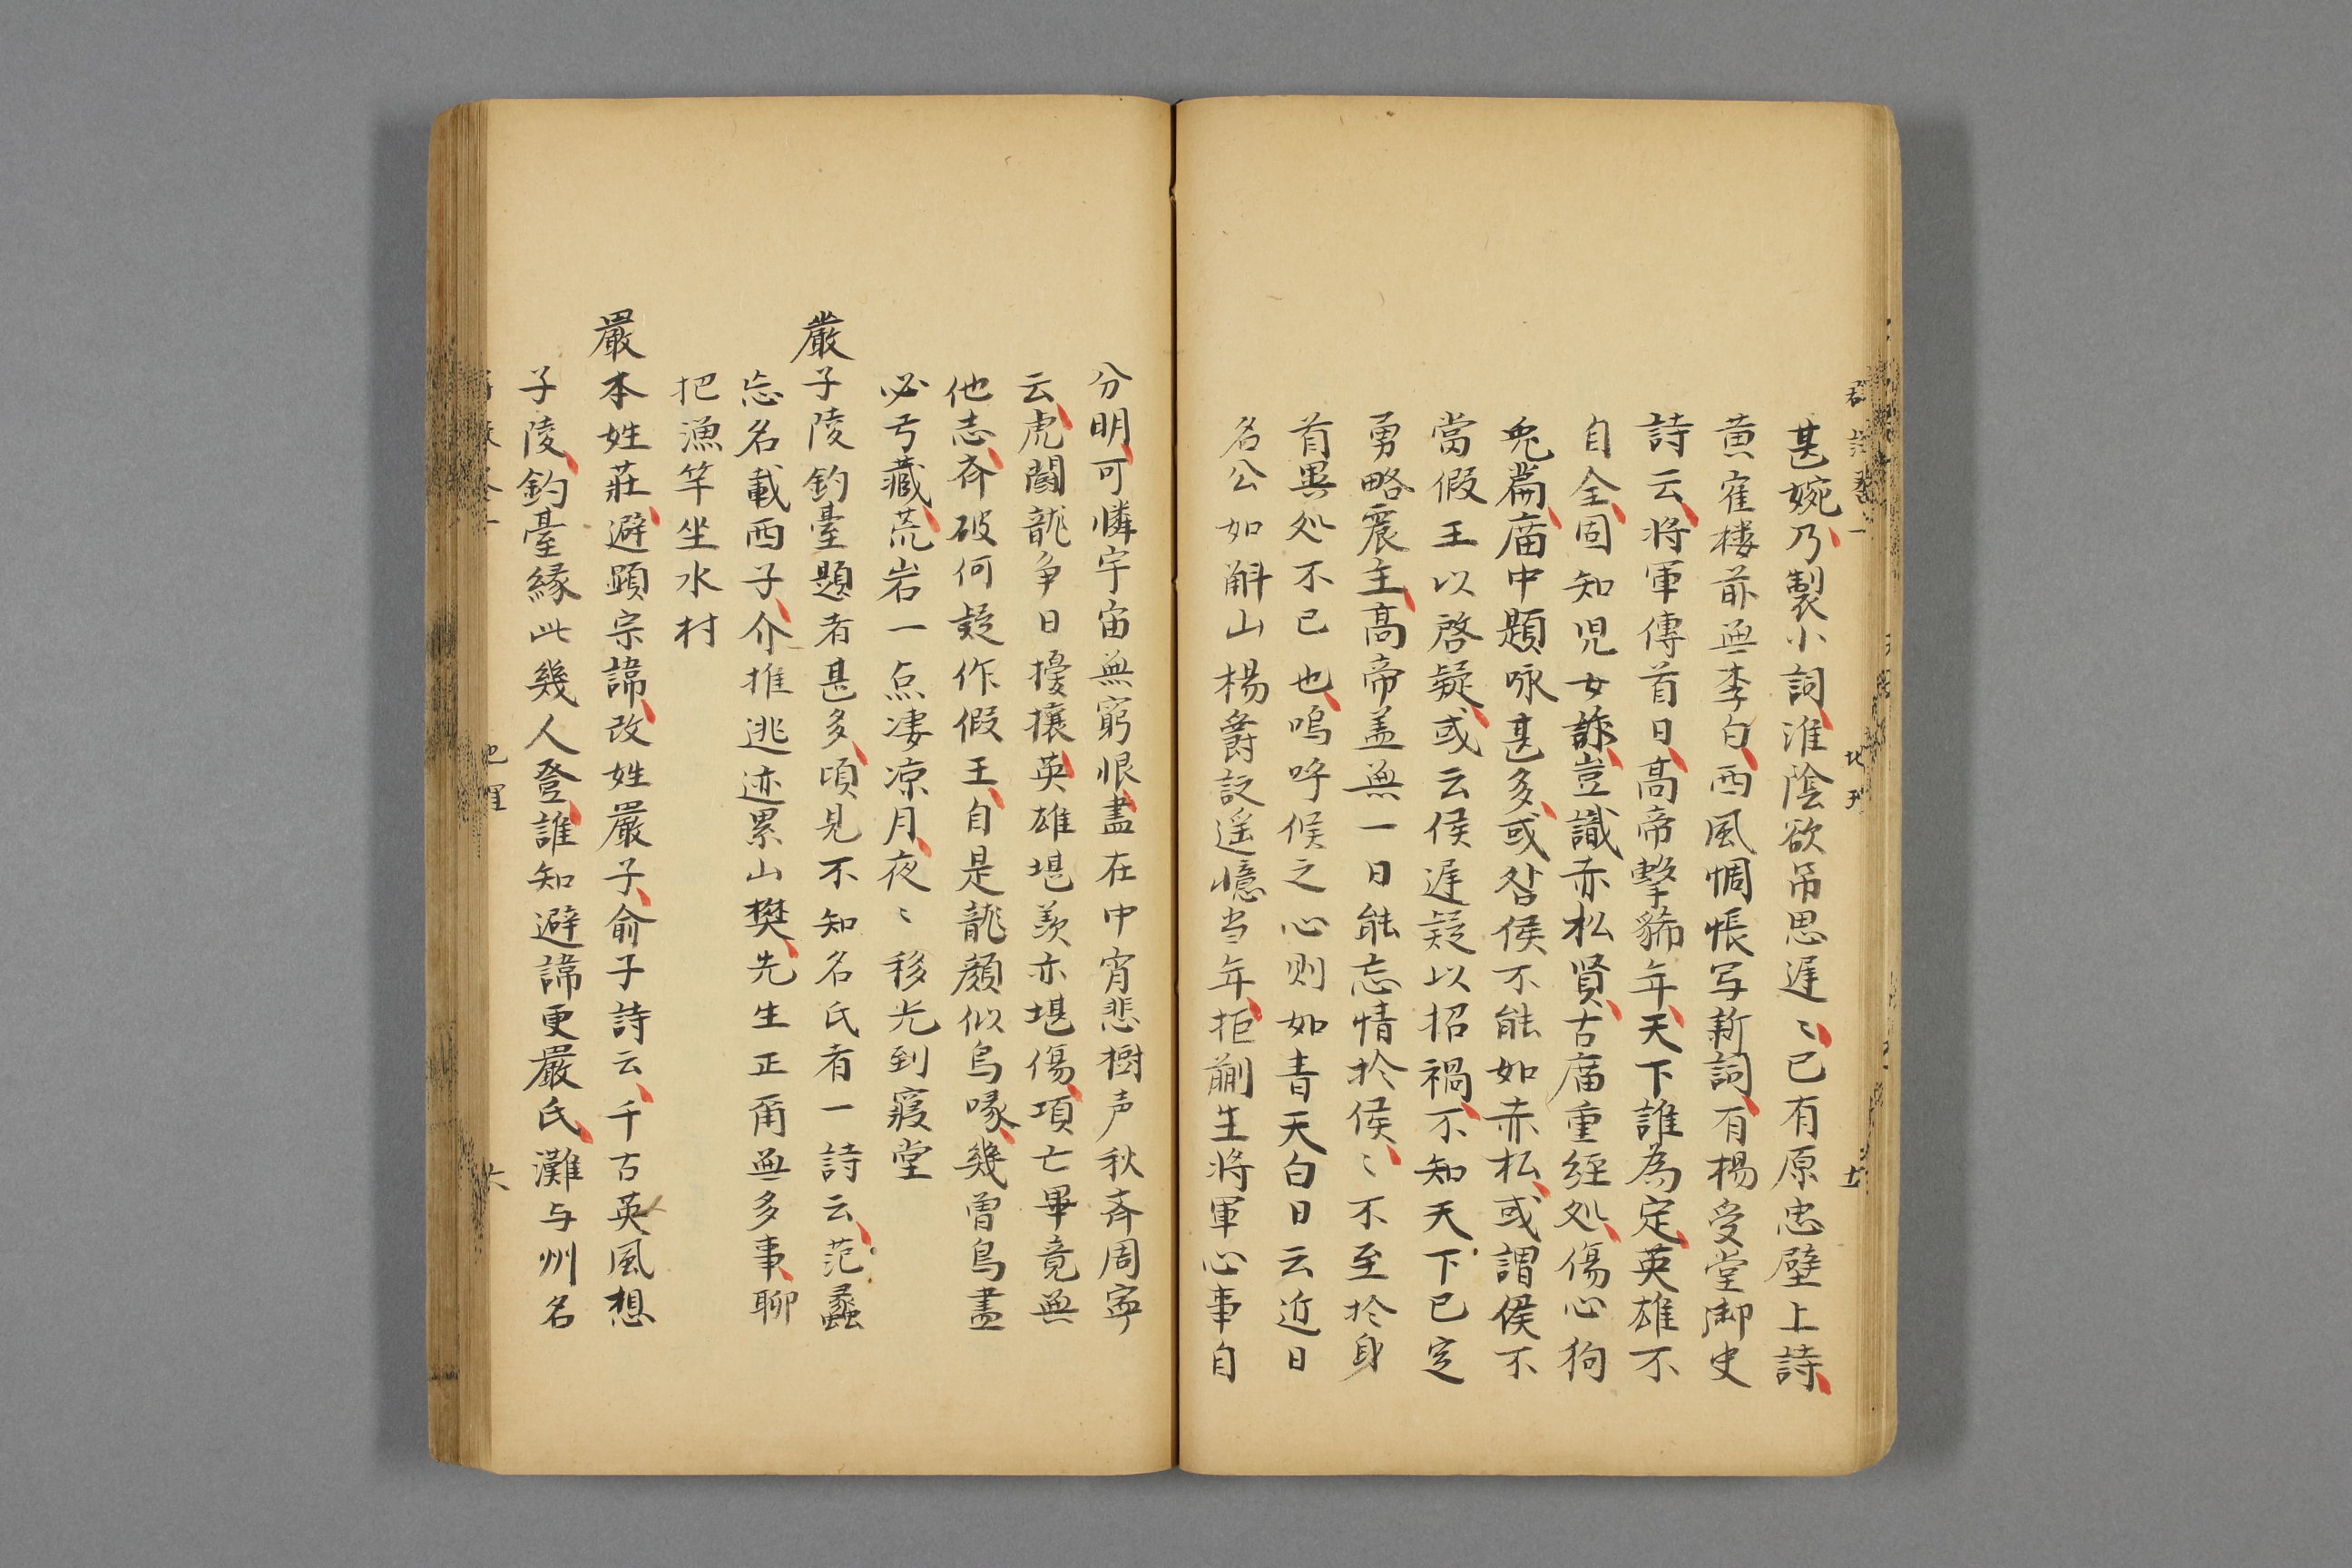 甚婉乃製小詞淮陰欲吊思遅〻已有原忠壁上詩
黄寉楼前無李白西風惆悵写新詞有楊受堂御史
詩云将軍傳首日高帝擊豨年天下誰為定英雄不
自全固知児女詐豈識赤松賢古庿重経処傷心狗
兎篇庿中題咏甚多或咎侯不能如赤松或謂侯不
當假王以啓疑或云侯遅疑以招禍不知天下已定
勇略震主高帝盖無一日能忘情於侯〻不至於身
首異処不已也嗚呼候之心則如青天白日云近日
名公如斛山楊爵詩遥憶当年拒蒯生将軍心事自
分明可憐宇宙無窮恨盡在中宵悲樹声秋斉周寧
云虎鬪龍争日擾攘英雄堪羨亦堪傷項亡畢竟無
他志斉破何疑作假王自是龍顔似鳥喙幾曽鳥盡
必弓藏荒岩一点凄凉月夜〻移光到寝堂
嚴子陵釣臺題者甚多頃見不知名氏者一詩云范蠡
忘名載西子介推逃迹累山樊先生正爾無多事聊
把漁竿坐水村
嚴本姓莊避顕宗諱改姓嚴子俞子詩云千古英風想
子陵釣臺縁此幾人登誰知避諱更嚴氏灘与州名